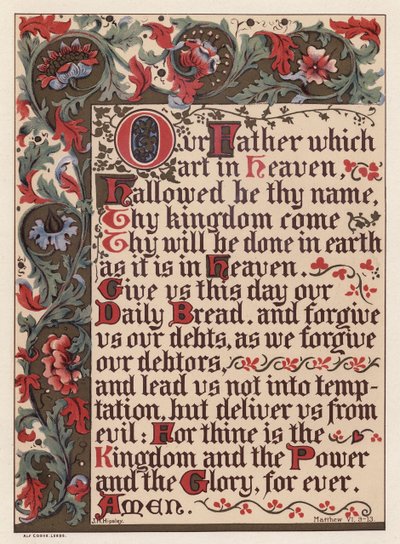 Our Father which
art in Heaven,
Hallowed be thy name,
Thy kingdom come
Thy will be done in earth
as it is in Heaven.
Give us this day our
Daily Bread, and forgive
us our debts, as we forgive
our debtors,
and lead us not into temp-
tation, but deliver us from
evil: For thine is the
Kingdom and the Power
and the Glory, for ever.
Amen.
J.H. Hipsley.
Matthew VI. 9-13.
ALF COOKE, LEEDS.